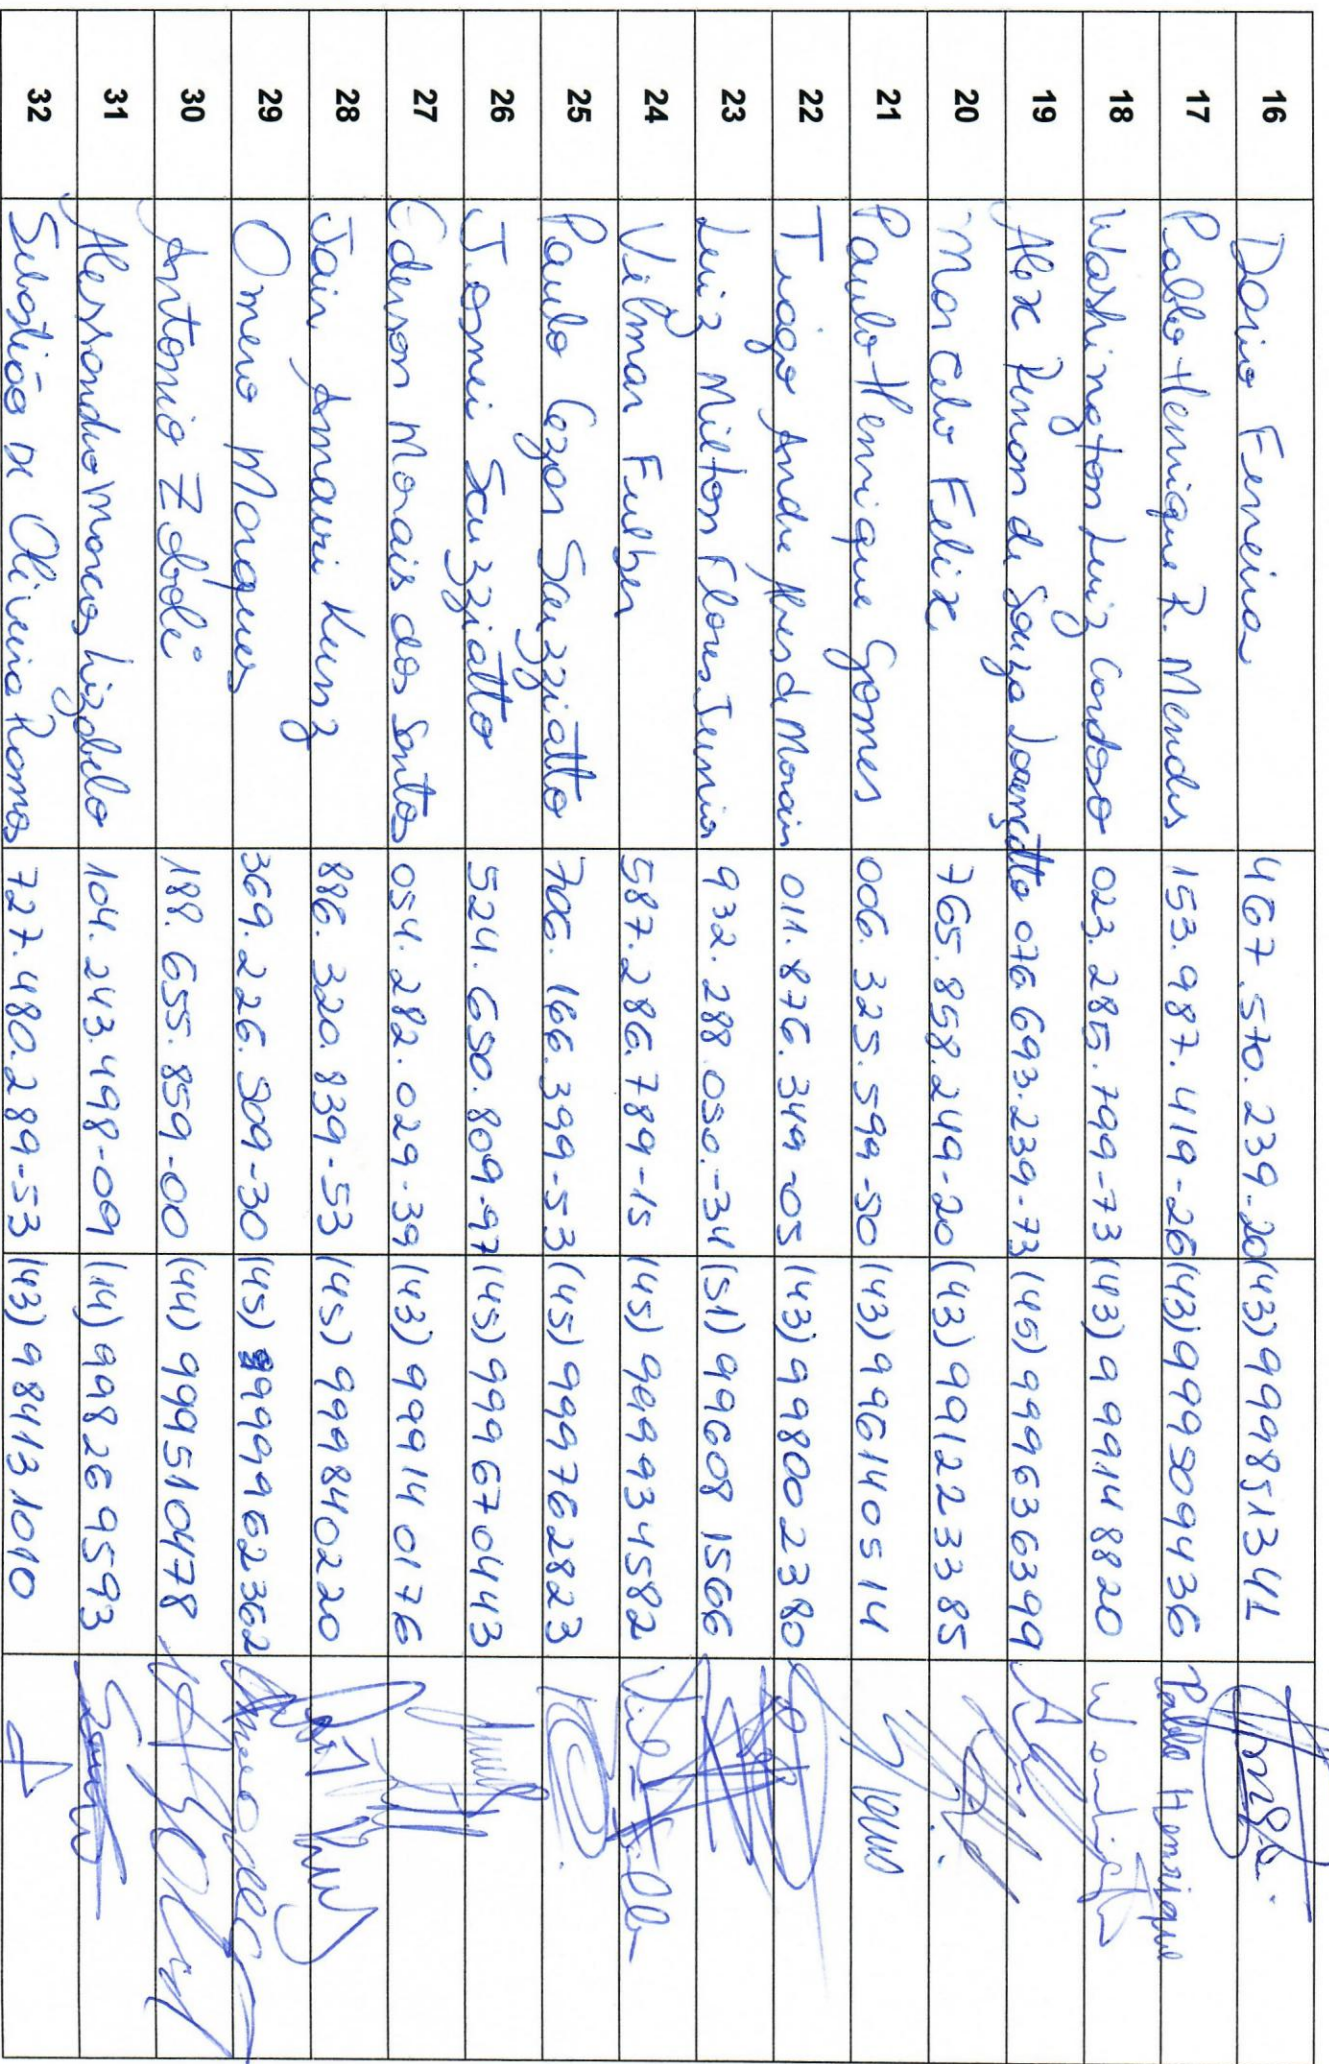 16 Dario Ferreira 467.570.239-20 (43) 999851341
17 Pablo Henrique R. Mendes 153.987.419-26 (43) 999509436
18 Washington Luiz Cardoso 023.285.799-73 (43) 999148820
19 Alex Renon de Souza 076.693.239-73 (45) 999636399
20 Marcelo Felix 765.858.249-20 (43) 991223385
21 Paulo Henrique Gomes 006.325.599-50 (43) 996140514
22 Tiago Andre Alves d Morais 011.876.349-05 (43) 998002380
23 Luiz Milton Flores Junior 932.288.050.-34 (51) 996081566
24 Vilmar Fulber 587.286.789-15 (45) 999934582
25 Paulo Cezar Scuzziatto 706.166.399-53 (45) 999762823
26 Josnei Scuzziatto 524.650.809-97 (45) 999670443
27 Ederson Morais dos Santos 054.282.029-39 (43) 999140176
28 Jair Amauri Kunz 886.320.839-53 (45) 999840220
29 Omero Marques 369.226.509-30 (45) 999962362
30 Antonio Zoboli 188.655.859-00 (44) 999510478
31 Alessandro Marcos Lizabelo 104.243.498-09 (14) 998269593
32 Sebastião de Oliveira Ramos 727.480.289-53 (43) 984131010
Pablo Henrique